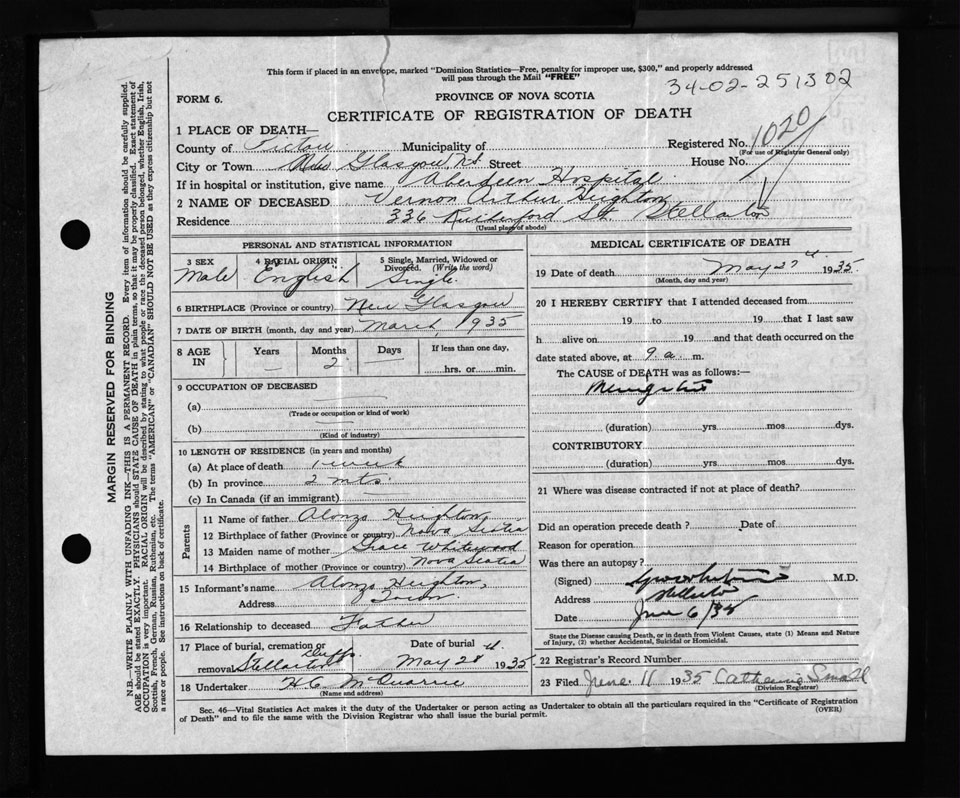 This form if placed in an envelope, marked "Dominion Statistics—Free, penalty for improper use, $300," and properly addressed
will pass through the Mail "FREE"
34-02-251302
FORM 6.
PROVINCE OF NOVA SCOTIA
CERTIFICATE OF REGISTRATION OF DEATH
1 PLACE OF DEATH—
County of Pictou Municipality of Registered No. 1020
(For use of Registrar General only)
City or Town New Glasgow Street House No.
If in hospital or institution, give name Aberdeen Hospital
2 NAME OF DECEASED Vernon Arthur Heighton
Residence 336 Rutherford St Stellarton
(Usual place of abode)
PERSONAL AND STATISTICAL INFORMATION
3 SEX 4 RACIAL ORIGIN 5 Single, Married, Widowed or
Divorced. (Write the word)
Male English Single.
6 BIRTHPLACE (Province or country) New Glasgow
7 DATE OF BIRTH (month, day and year) March, 1935
8 AGE IN Years Months Days If less than one day,
2 hrs. or min.
9 OCCUPATION OF DECEASED
(a)
(Trade or occupation or kind of work)
(b)
(Kind of industry)
10 LENGTH OF RESIDENCE (in years and months)
(a) At place of death 1 week
(b) In province 2 mts.
(c) In Canada (if an immigrant)
Parents
11 Name of father Alonzo Heighton
12 Birthplace of father (Province or country) Nova Scotia
13 Maiden name of mother Grace Whitewood
14 Birthplace of mother (Province or country) Nova Scotia
15 Informant's name Alonzo Heighton,
Address
16 Relationship to deceased Father
17 Place of burial, cremation or Date of burial
removal Stellarton May 28 1935
18 Undertaker H C McQuarrie
(Name and address)
MEDICAL CERTIFICATE OF DEATH
19 Date of death May 27 1935.
(Month, day and year)
20 I HEREBY CERTIFY that I attended deceased from
19 to 19 that I last saw
h alive on 19 and that death occurred on the
date stated above, at 9 a. m.
The CAUSE of DEATH was as follows:—
Meningitis
(duration) yrs mos dys.
CONTRIBUTORY
(duration) yrs. mos. dys.
21 Where was disease contracted if not at place of death?
Did an operation precede death? Date of
Reason for operation
Was there an autopsy?
(Signed) M.D.
Address Stellarton
Date June 6/35
State the Disease causing Death, or in death from Violent Causes, state (1) Means and Nature
of Injury, (2) whether Accidental, Suicidal or Homicidal.
22 Registrar's Record Number
23 Filed June 11 1935 Catherine Small
(Division Registrar)
Sec. 46—Vital Statistics Act makes it the duty of the Undertaker or person acting as Undertaker to obtain all the particulars required in the "Certificate of Registration
of Death" and to file the same with the Division Registrar who shall issue the burial permit. (OVER)
MARGIN RESERVED FOR BINDING
N.B.—WRITE PLAINLY WITH UNFADING INK—THIS IS A PERMANENT RECORD. Every item of information should be carefully supplied.
AGE should be stated EXACTLY. PHYSICIANS should STATE CAUSE OF DEATH in plain terms, so that it may be properly classified. Exact statement of
OCCUPATION is very important. RACIAL ORIGIN will be described by stating to what people or race the deceased person belonged, whether English, Irish,
Scottish, French, German, Russian, Ruthenian, etc. The terms "AMERICAN" or "CANADIAN" SHOULD NOT BE USED as they express citizenship but not
a race or people. See instructions on back of certificate.